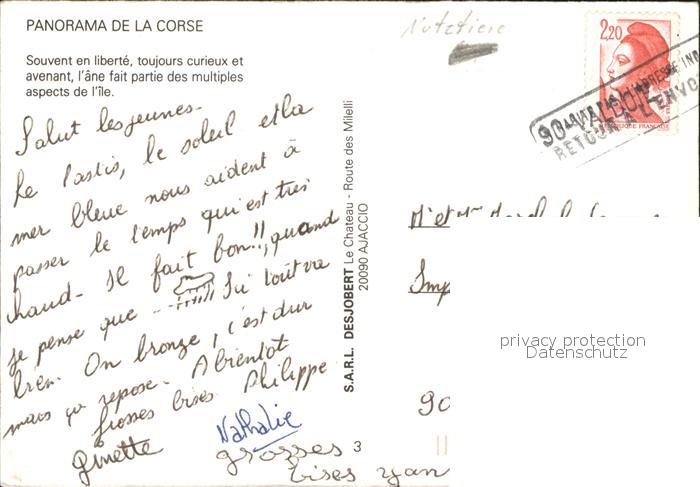 PANORAMA DE LA CORSE
Souvent en liberté, toujours curieux et
avenant, l'âne fait partie des multiples
aspects de l'île.
Salut les jeunes -
Le Pastis, le soleil et la
mer bleue nous aident à
passer le temps qui est très
chaud - Il fait bon!!, quand
je pense que .... Ici tout va
bien. On bronze, c'est dur
mais ça repose. A bientôt
Grosses bises Philippe
Ginette
Nathalie
grosses
bises yan
S.A.R.L. DESJOBERT Le Chateau - Route des Milelli
20090 AJACCIO
3
2,20
REPUBLIQUE FRANCAISE
90-VALDOIE
RETOUR A L'ENVO
M et Me
Imp
90
privacy protection
Datenschutz